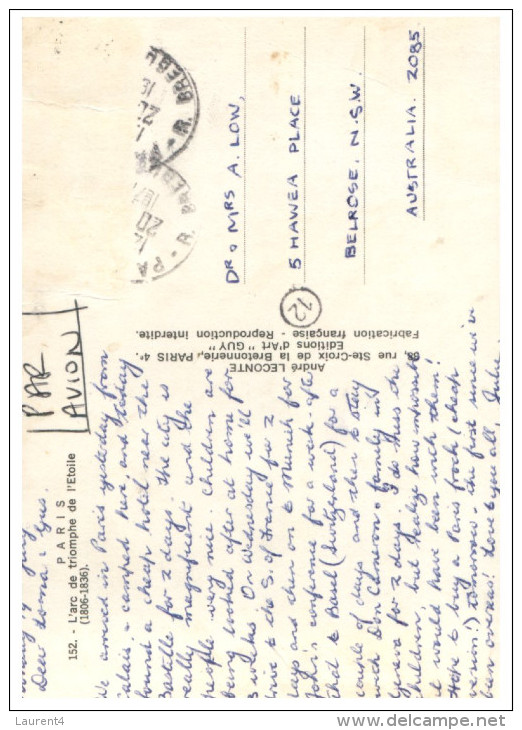 Dear Lorna & Gus.
We arrived in Paris yesterday from
Calais & camped here and today
found a cheap hotel near the
Bastille for 2 days. The city is
really magnificent and the
people very nice. Children are
being looked after at home for
3 weeks. On Wednesday we'll
drive to the S. of France for 2
days and then on to Munich for
John's conference for a week - after
that to Basel (Switzerland) for a
couple of days and then to stay
with Don Cameron & family in
Geneva for 2 days. I do miss the
children, but realize how impossible
it would have been with them!
Hope to buy a Paris frock (cheap
version!) tomorrow - the first since we've
been overseas! Love to you all, Julie.
PARIS
152. - L'arc de triomphe de l'Etoile
(1806-1836).
PAR
AVION
André LECONTE
38, rue Ste-Croix de la Bretonnerie, PARIS 4e
Editions d'Art " GUY "
Fabrication française - Reproduction interdite.
12
DR & MRS A. LOW,
5 HAWEA PLACE
BELROSE, N.S.W.
AUSTRALIA. 2085
Laurent4
delcampe.net